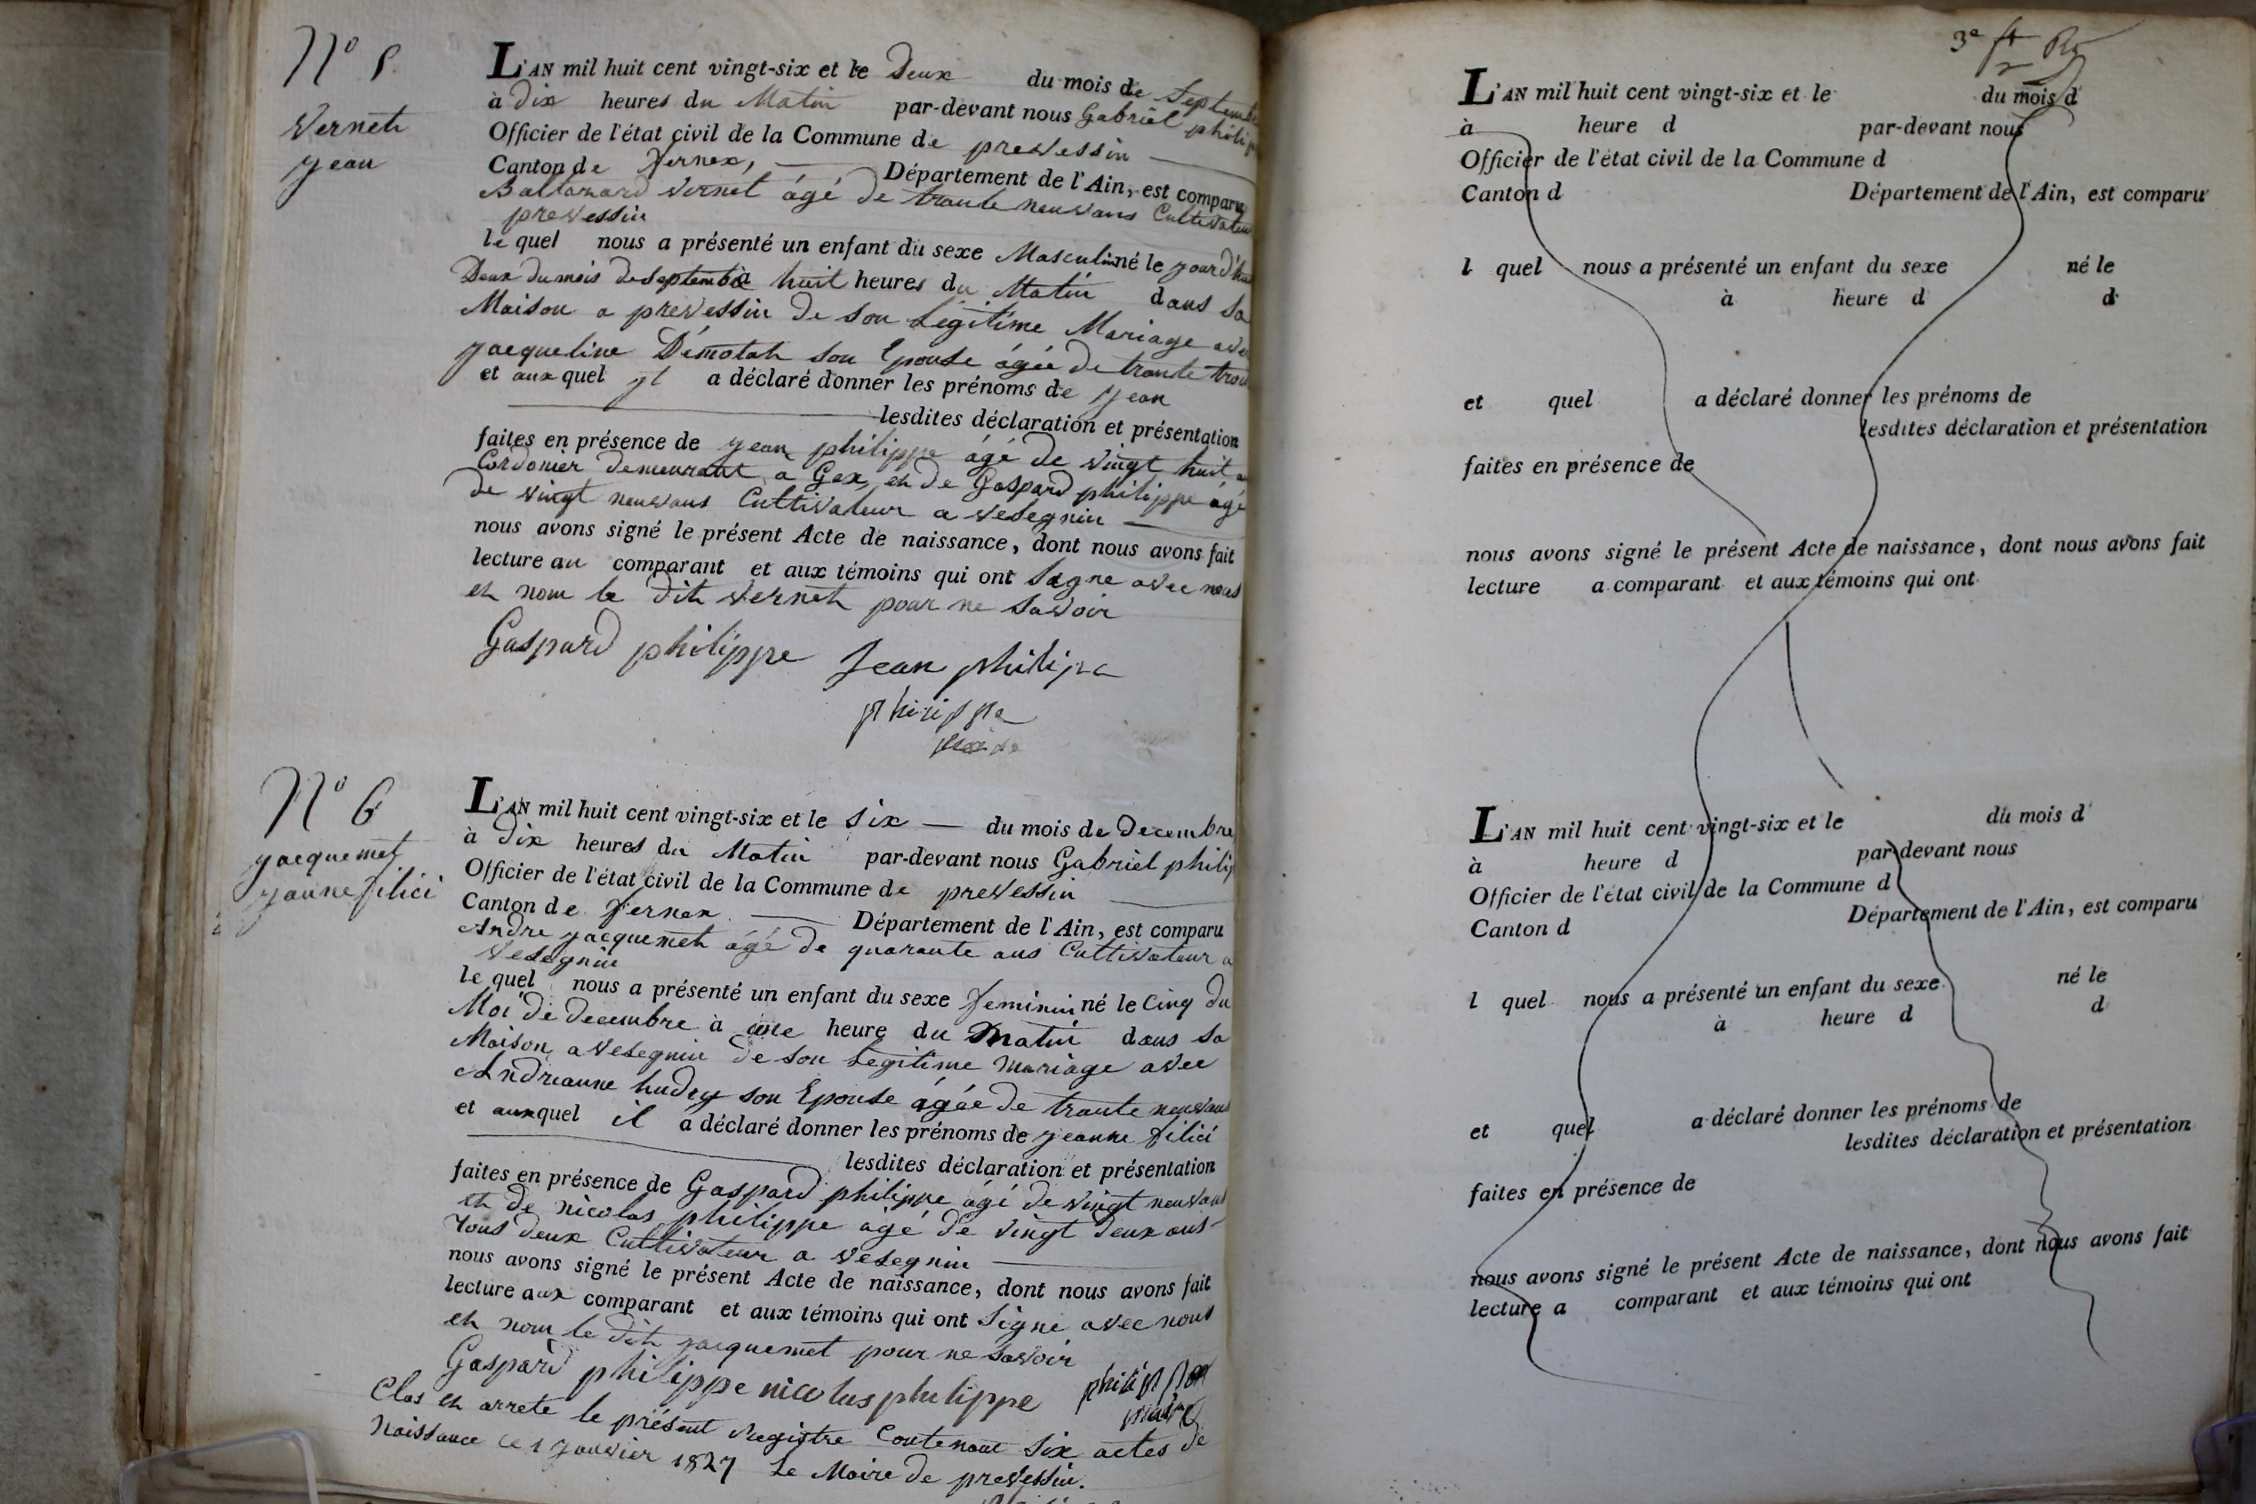 N° 5
Vernet
jean
L'AN mil huit cent vingt-six et le Deux du mois de Septembre
à Dix heures du Matin par-devant nous Gabriel philip
Officier de l'état civil de la Commune de prevessin
Canton de fernex, Département de l'Ain, est comparu
Baltazard Vernet âgé de trante neuvans Cultivateur
prevessin
le quel nous a présenté un enfant du sexe Masculin né le jourd'hui
Deux du mois de septembre à huit heures du Matin dans sa
Maison a prevessin de son Légitime Mariage avec
jacqueline Démotah son Epouse âgée de trante trois
et aux quel yl a déclaré donner les prénoms de jean
lesdites déclaration et présentation
faites en présence de jean philippe âgé de vingt huit
Cordonier demeurant a Gex, et de Gaspard philippe âgé
de vingt neuvans Cultivateur a vesegnin
nous avons signé le présent Acte de naissance, dont nous avons fait
lecture au comparant et aux témoins qui ont Signe avec nous
et nom le dit vernet pour ne savoir
Gaspard philippe Jean philipe
philippe
N° 6
jacquemet
janne filici
L'AN mil huit cent vingt-six et le six du mois de Decembre
à Dix heures du Matin par-devant nous Gabriel philip
Officier de l'état civil de la Commune de prevessin
Canton de fernex Département de l'Ain, est comparu
Andre jacquemet âgé de quarante ans Cultivateur a
Vesegnin
le quel nous a présenté un enfant du sexe feminin né le Cinq du
Moi de decembre à une heure du Matin dans sa
Maison a vesegnin de son Legitime mariage avec
Andrianne hudry son Epouse âgée de trante neuvans
et aux quel il a déclaré donner les prénoms de jeanne filici
lesdites déclaration et présentation
faites en présence de Gaspard philippe âgé de vingt neuvans
et de nicolas philippe âgé de vingt deux ans
Tous deux Cultivateur a vesegnin
nous avons signé le présent Acte de naissance, dont nous avons fait
lecture aux comparant et aux témoins qui ont Signé avec nous
et nom le dit jacquemet pour ne savoir
Gaspard philippe nicolas philippe philippe
maire
Clos et arrete le présent Registre Contenant six actes de
Naissance ce 1 janvier 1827 Le Maire de prevessin.
3e
L'AN mil huit cent vingt-six et le du mois d
à heure d par-devant nous
Officier de l'état civil de la Commune d
Canton d Département de l'Ain, est comparu
l quel nous a présenté un enfant du sexe né le
à heure d d
et quel a déclaré donner les prénoms de
lesdites déclaration et présentation
faites en présence de
nous avons signé le présent Acte de naissance, dont nous avons fait
lecture a comparant et aux témoins qui ont
L'AN mil huit cent vingt-six et le du mois d
à heure d par-devant nous
Officier de l'état civil de la Commune d
Canton d Département de l'Ain, est comparu
l quel nous a présenté un enfant du sexe né le
à heure d d
et quel a déclaré donner les prénoms de
lesdites déclaration et présentation
faites en présence de
nous avons signé le présent Acte de naissance, dont nous avons fait
lecture a comparant et aux témoins qui ont